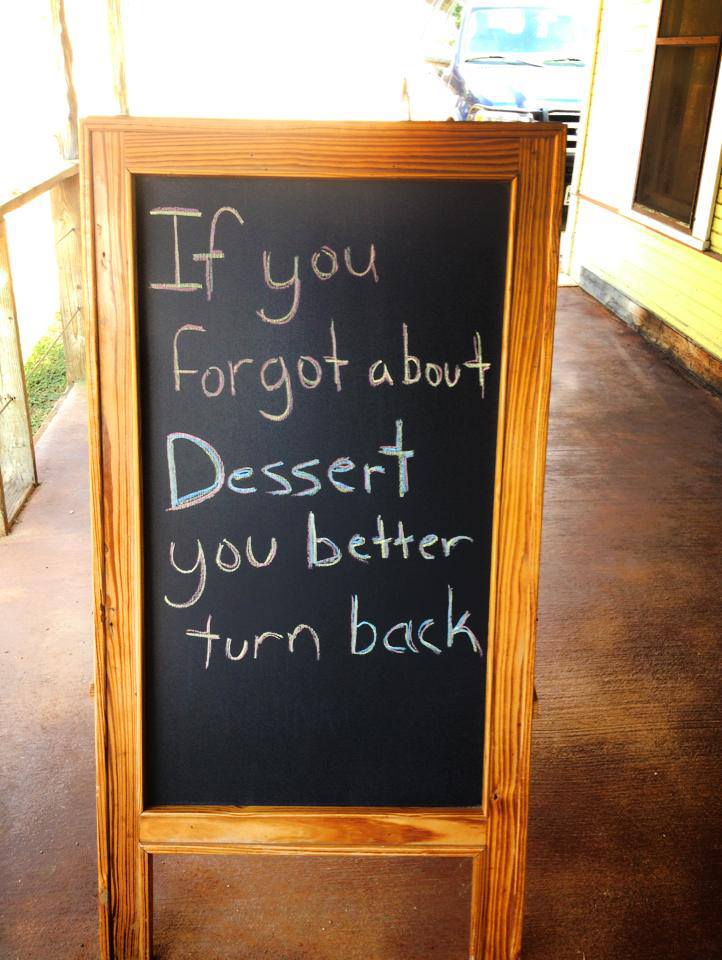 If you
forgot about
Dessert
you better
turn back